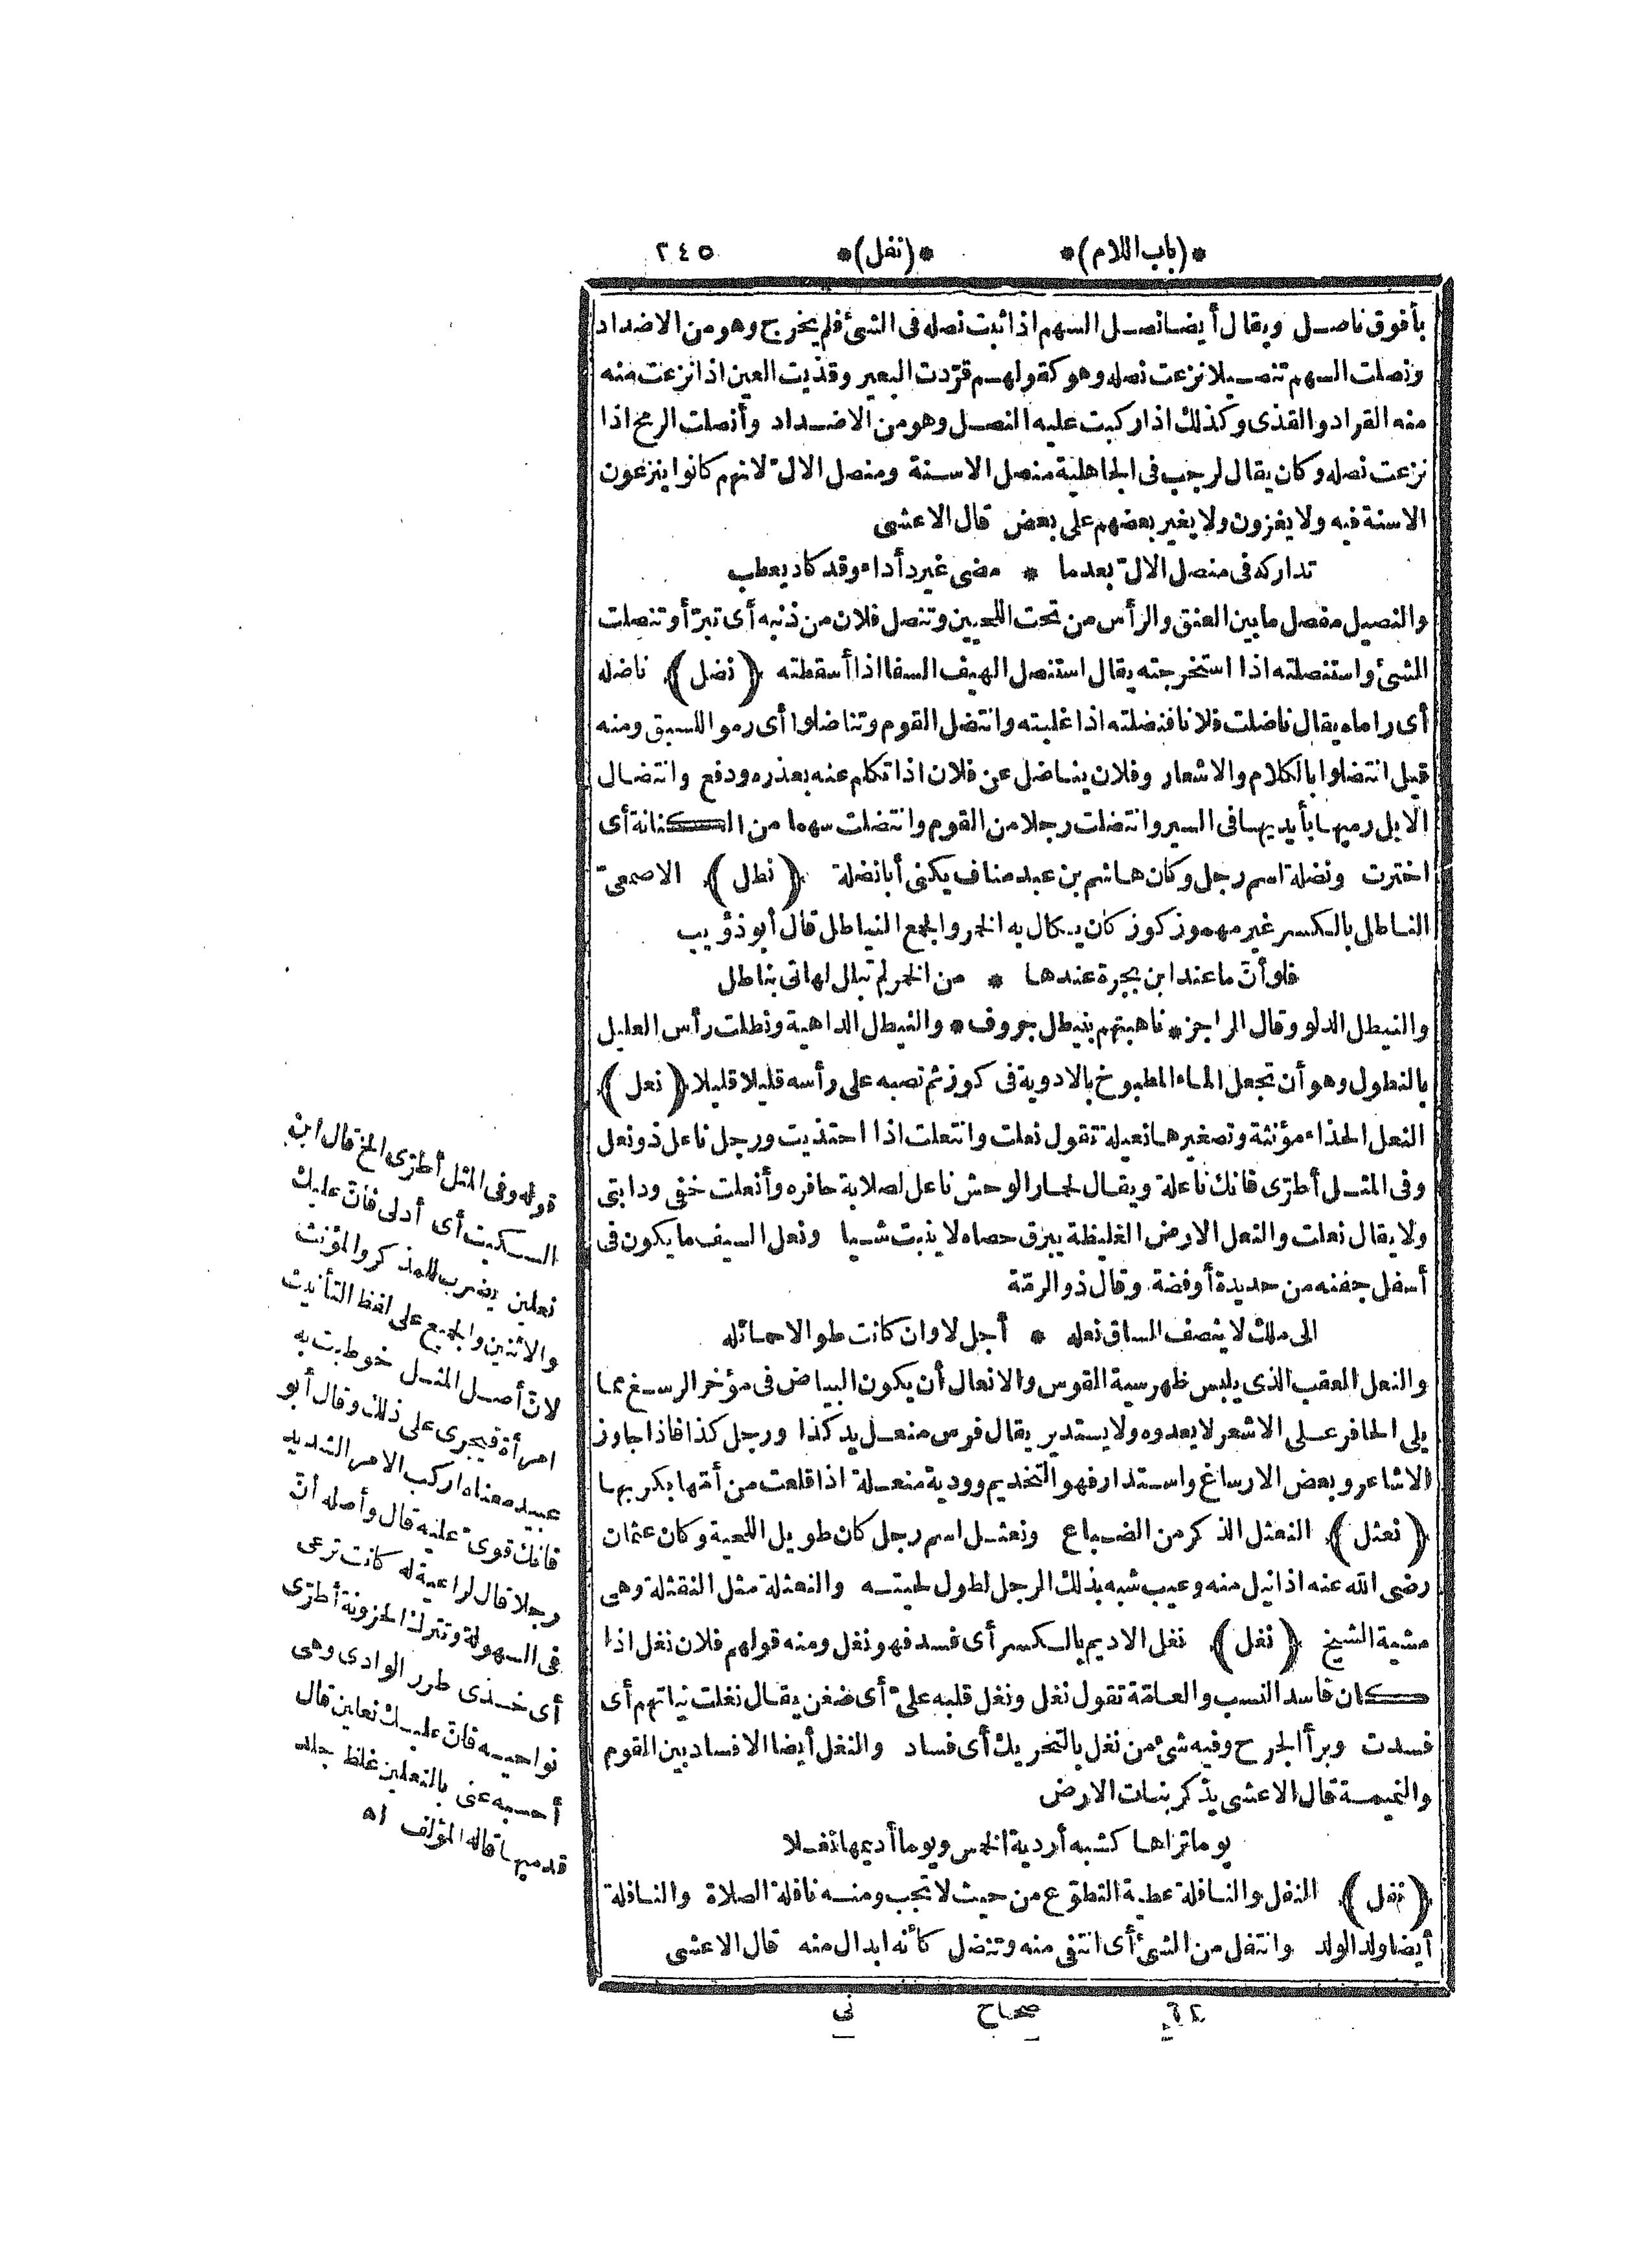 *(باب اللام)* *(نفل)* ٢٤٥
بأفوق ناصل ويقال أيضا نصل السهم اذا ثبت نصله فى الشئ فلم يخرج وهو من الاضداد
ونصلت السهم تنصيلا نزعت نصله وهو كقولهم قرّدت البعير وقذّيت العين اذا نزعت منه
منه القراد والقذى وكذلك اذا ركبت عليه النصل وهو من الاضداد وأنصلت الرمح اذا
نزعت نصله وكان يقال لرجب فى الجاهلية منصل الاسنة ومنصل الالّ لانهم كانوا ينزعون
الاسنة فيه ولا يغزون ولا يغير بعضهم على بعض قال الاعشى
تداركه فى منصل الالّ بعدما * مضى غير دأداء وقد كاد يعطب
والنصيل مفصل ما بين العنق والرأس من تحت اللحيين وتنصل فلان من ذنبه أى تبرّأ وتنصلت
الشئ واستنصلته اذا استخرجته يقال استنصل الهيف السفا اذا أسقطته (نضل) ناضله
أى راماه يقال ناضلت فلانا فنضلته اذا غلبته وانتضل القوم وتناضلوا أى رموا للسبق ومنه
قيل انتضلوا بالكلام والاشعار وفلان يناضل عن فلان اذا تكلم عنه بعذره ودفع وانتضال
الابل رميها بأيديها فى السير وانتضلت رجلا من القوم وانتضلت سهما من الكنانة أى
اخترت ونضلة اسم رجل وكان هاشم بن عبد مناف يكنى أبا نضلة (نطل) الاصمعىّ
الناطل بالكسر غير مهموز كوز كان يكال به الخمر والجمع النياطل قال أبو ذؤيب
فلو أنّ ما عند ابن بجرة عندها * من الخمر لم تبلل لهاتى بناطل
والنيطل الدلو وقال الراجز * ناهبتهم بنيطل جروف * والنيطل الداهية ونطلت رأس العليل
بالنطول وهو أن تجعل الماء المطبوخ بالادوية فى كوز ثم تصبه على رأسه قليلا قليلا (نعل)
النعل الحذاء مؤنثة وتصغيرها نعيلة تقول نعلت وانتعلت اذا احتذيت ورجل ناعل ذو نعل
وفى المثل أطرّى فانك ناعلة ويقال لحمار الوحش ناعل لصلابة حافره وأنعلت خفى ودابتى
ولا يقال نعلت والنعل الارض الغليظة يبرق حصاه لا ينبت شيا ونعل السيف ما يكون فى
أسفل جفنه من حديدة أو فضة وقال ذو الرمّة
الى ملك لا ينصف الساق نعله * أجل لا وان كانت طوالا حمائله
والنعل العقب الذى يلبس ظهر سية القوس والانعال أن يكون البياض فى مؤخر الرسغ مما
يلى الحافر على الاشعر لا يعدوه ولا يستدير يقال فرس منعل يد كذا ورجل كذا فاذا جاوز
الاشاعر وبعض الارساغ واستدار فهو التخديم وودية منعلة اذا قلعت من أمّها بكربها
(نعثل) النعثل الذكر من الضباع ونعثل اسم رجل كان طويل اللحية وكان عثمان
رضى الله عنه اذا نيل منه وعيب شبه بذلك الرجل لطول لحيته والنعثلة مثل النقثلة وهى
مشية الشيخ (نغل) نغل الاديم بالكسر أى فسد فهو نغل ومنه قولهم فلان نغل اذا
كان فاسد النسب والعامّة تقول نغل ونغل قلبه علىّ أى ضغن يقال نغلت نياتهم أى
فسدت وبرأ الجرح وفيه شئ من نغل بالتحريك أى فساد والنغل أيضا الافساد بين القوم
والنميمة قال الاعشى يذكر بنات الارض
يوما تراها كشبه أردية الخمس ويوما أديمها نغلا
(نفل) النفل والنافلة عطية التطوّع من حيث لا تجب ومنه نافلة الصلاة والنافلة
أيضا ولد الولد وانتفل من الشئ أى انتفى منه وتنضل كأنه ابدال منه قال الاعشى
صحاح نى
قوله وفى المثل أطرّى الخ قال ابن
السكيت أى أدلى فانّ عليك
نعلين يضرب للمذكر والمؤنث
والاثنين والجميع على لفظ التأنيث
لانّ أصل المثل خوطبت به
امرأة فيجرى على ذلك وقال أبو
عبيد معناه اركب الامر الشديد
فانك قوىّ عليه قال وأصله أنّ
رجلا قال لراعية له كانت ترعى
فى السهولة وتترك الحزونة أطرّى
أى خذى طرر الوادى وهى
نواحيه فانّ عليك نعلين قال
أحسبه عنى بالنعلين غلظ جلد
قدميها قاله المؤلف اه